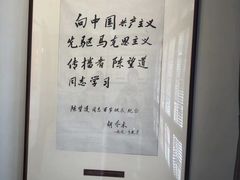 向中国共产主义
先驱马克思主义
传播者陈望道
同志学习
陈望道同志百岁诞辰纪念
胡乔木